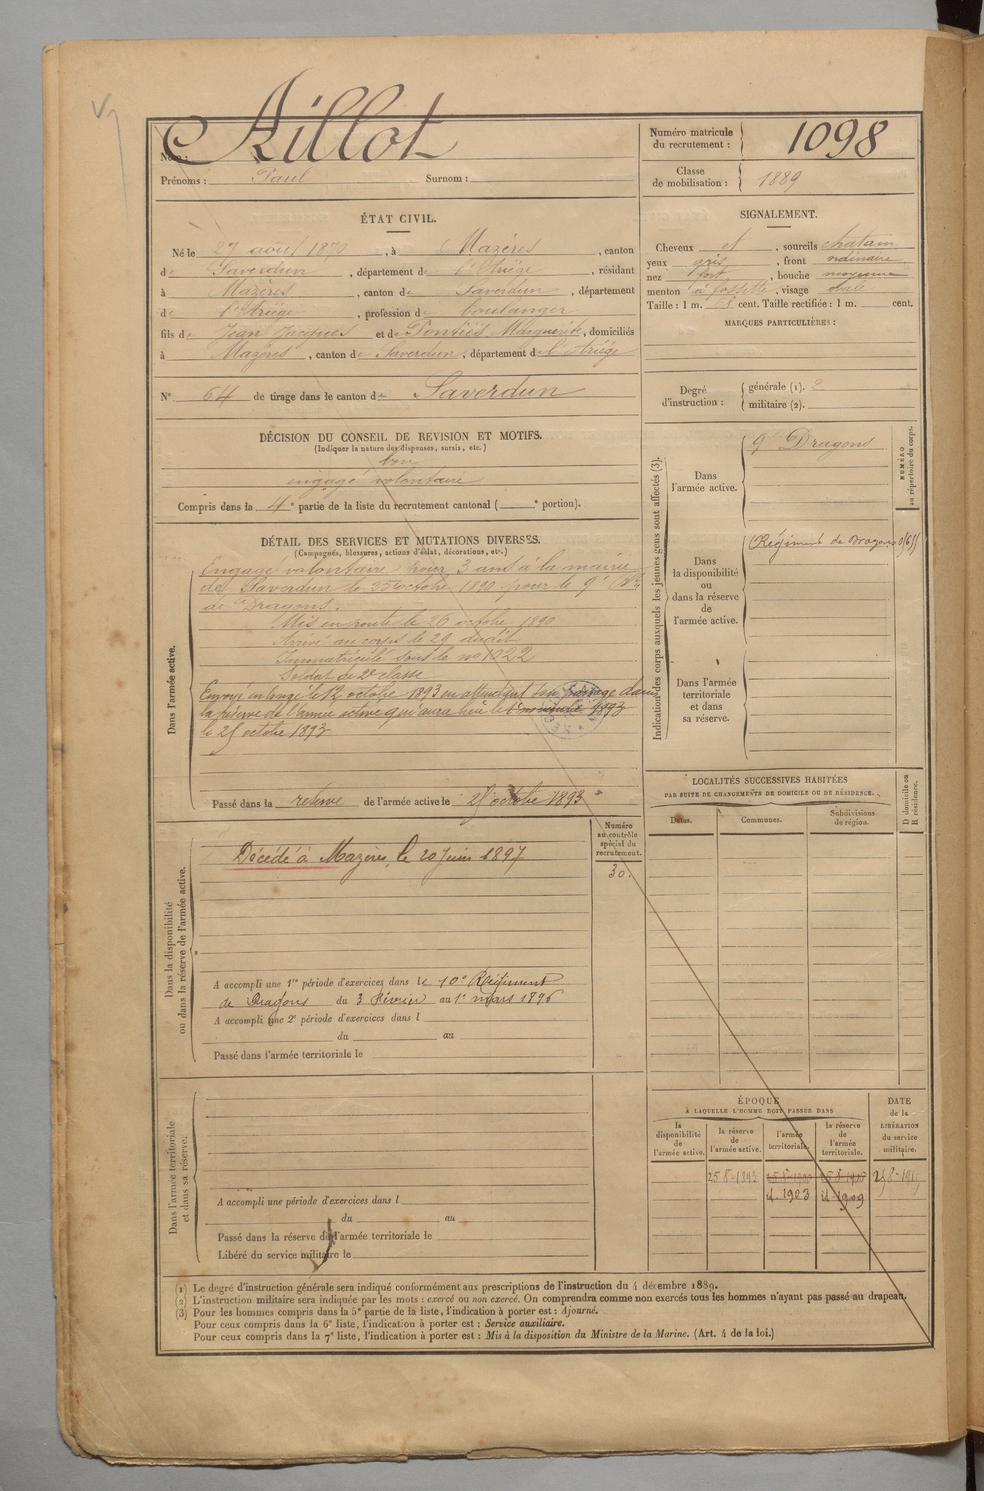 Aillot
Nom :
Prénoms : Paul Surnom :
Numéro matricule du recrutement : 1098
Classe de mobilisation : 1889
ÉTAT CIVIL.
Né le 27 août 1870, à Mazères, canton
de Saverdun, département de l'Ariège, résidant
à Mazères, canton de Saverdun, département
de l'Ariège, profession de boulanger
fils de Jean Jacques et de Pontiès Marguerite, domiciliés
à Mazères, canton de Saverdun, département de l'Ariège
N° 64 de tirage dans le canton de Saverdun
SIGNALEMENT.
Cheveux et, sourcils chatain
yeux gris, front ordinaire
nez fort, bouche moyenne
menton à fossette, visage ovale
Taille : 1 m. 68 cent. Taille rectifiée : 1 m. cent.
MARQUES PARTICULIÈRES :
Degré d'instruction : générale (1). 2
militaire (2).
DÉCISION DU CONSEIL DE REVISION ET MOTIFS.
(Indiquer la nature des dispenses, sursis, etc.)
bon
engagé volontaire
Compris dans la 4e partie de la liste du recrutement cantonal ( e portion).
DÉTAIL DES SERVICES ET MUTATIONS DIVERSES.
(Campagnes, blessures, actions d'éclat, décorations, etc.)
Dans l'armée active.
Engagé volontaire pour 3 ans à la mairie
de Saverdun le 25 octobre 1890 pour le 9e Rt
de Dragons.
Mis en route le 26 octobre 1890
Arrivé au corps le 29 dudit
Immatriculé sous le no 1022
Soldat de 2e classe
Envoyé en congé le 12 octobre 1893 en attendant son passage dans
la réserve de l'armée active qui aura lieu le 1893
le 25 octobre 1893
Passé dans la réserve de l'armée active le 25 octobre 1893
Indication des corps auxquels les jeunes gens sont affectés (3).
NUMÉRO au répertoire du corps.
Dans l'armée active.
9e Dragons
Dans la disponibilité ou dans la réserve de l'armée active.
Régiment de Dragons
Dans l'armée territoriale et dans sa réserve.
LOCALITÉS SUCCESSIVES HABITÉES
PAR SUITE DE CHANGEMENTS DE DOMICILE OU DE RÉSIDENCE.
Dates. Communes. Subdivisions de région. D domicile ou R résidence.
Dans la disponibilité ou dans la réserve de l'armée active.
Numéro au contrôle spécial du recrutement.
30.
Décédé à Mazères, le 20 Juin 1897
A accompli une 1re période d'exercices dans le 10e Régiment
de Dragons du 3 Février au 1er mars 1896
A accompli une 2e période d'exercices dans l
du au
Passé dans l'armée territoriale le
Dans l'armée territoriale et dans sa réserve.
A accompli une période d'exercices dans l
du au
Passé dans la réserve de l'armée territoriale le
Libéré du service militaire le
ÉPOQUE
À LAQUELLE L'HOMME DOIT PASSER DANS
la disponibilité de l'armée active. la réserve de l'armée active. l'armée territoriale. la réserve de l'armée territoriale.
DATE de la LIBÉRATION du service militaire.
25 8-1893
1903 1909
(1) Le degré d'instruction générale sera indiqué conformément aux prescriptions de l'instruction du 4 décembre 1889.
(2) L'instruction militaire sera indiquée par les mots : exercé ou non exercé. On comprendra comme non exercés tous les hommes n'ayant pas passé au drapeau.
(3) Pour les hommes compris dans la 5e partie de la liste, l'indication à porter est : Ajourné.
Pour ceux compris dans la 6e liste, l'indication à porter est : Service auxiliaire.
Pour ceux compris dans la 7e liste, l'indication à porter est : Mis à la disposition du Ministre de la Marine. (Art. 4 de la loi.)